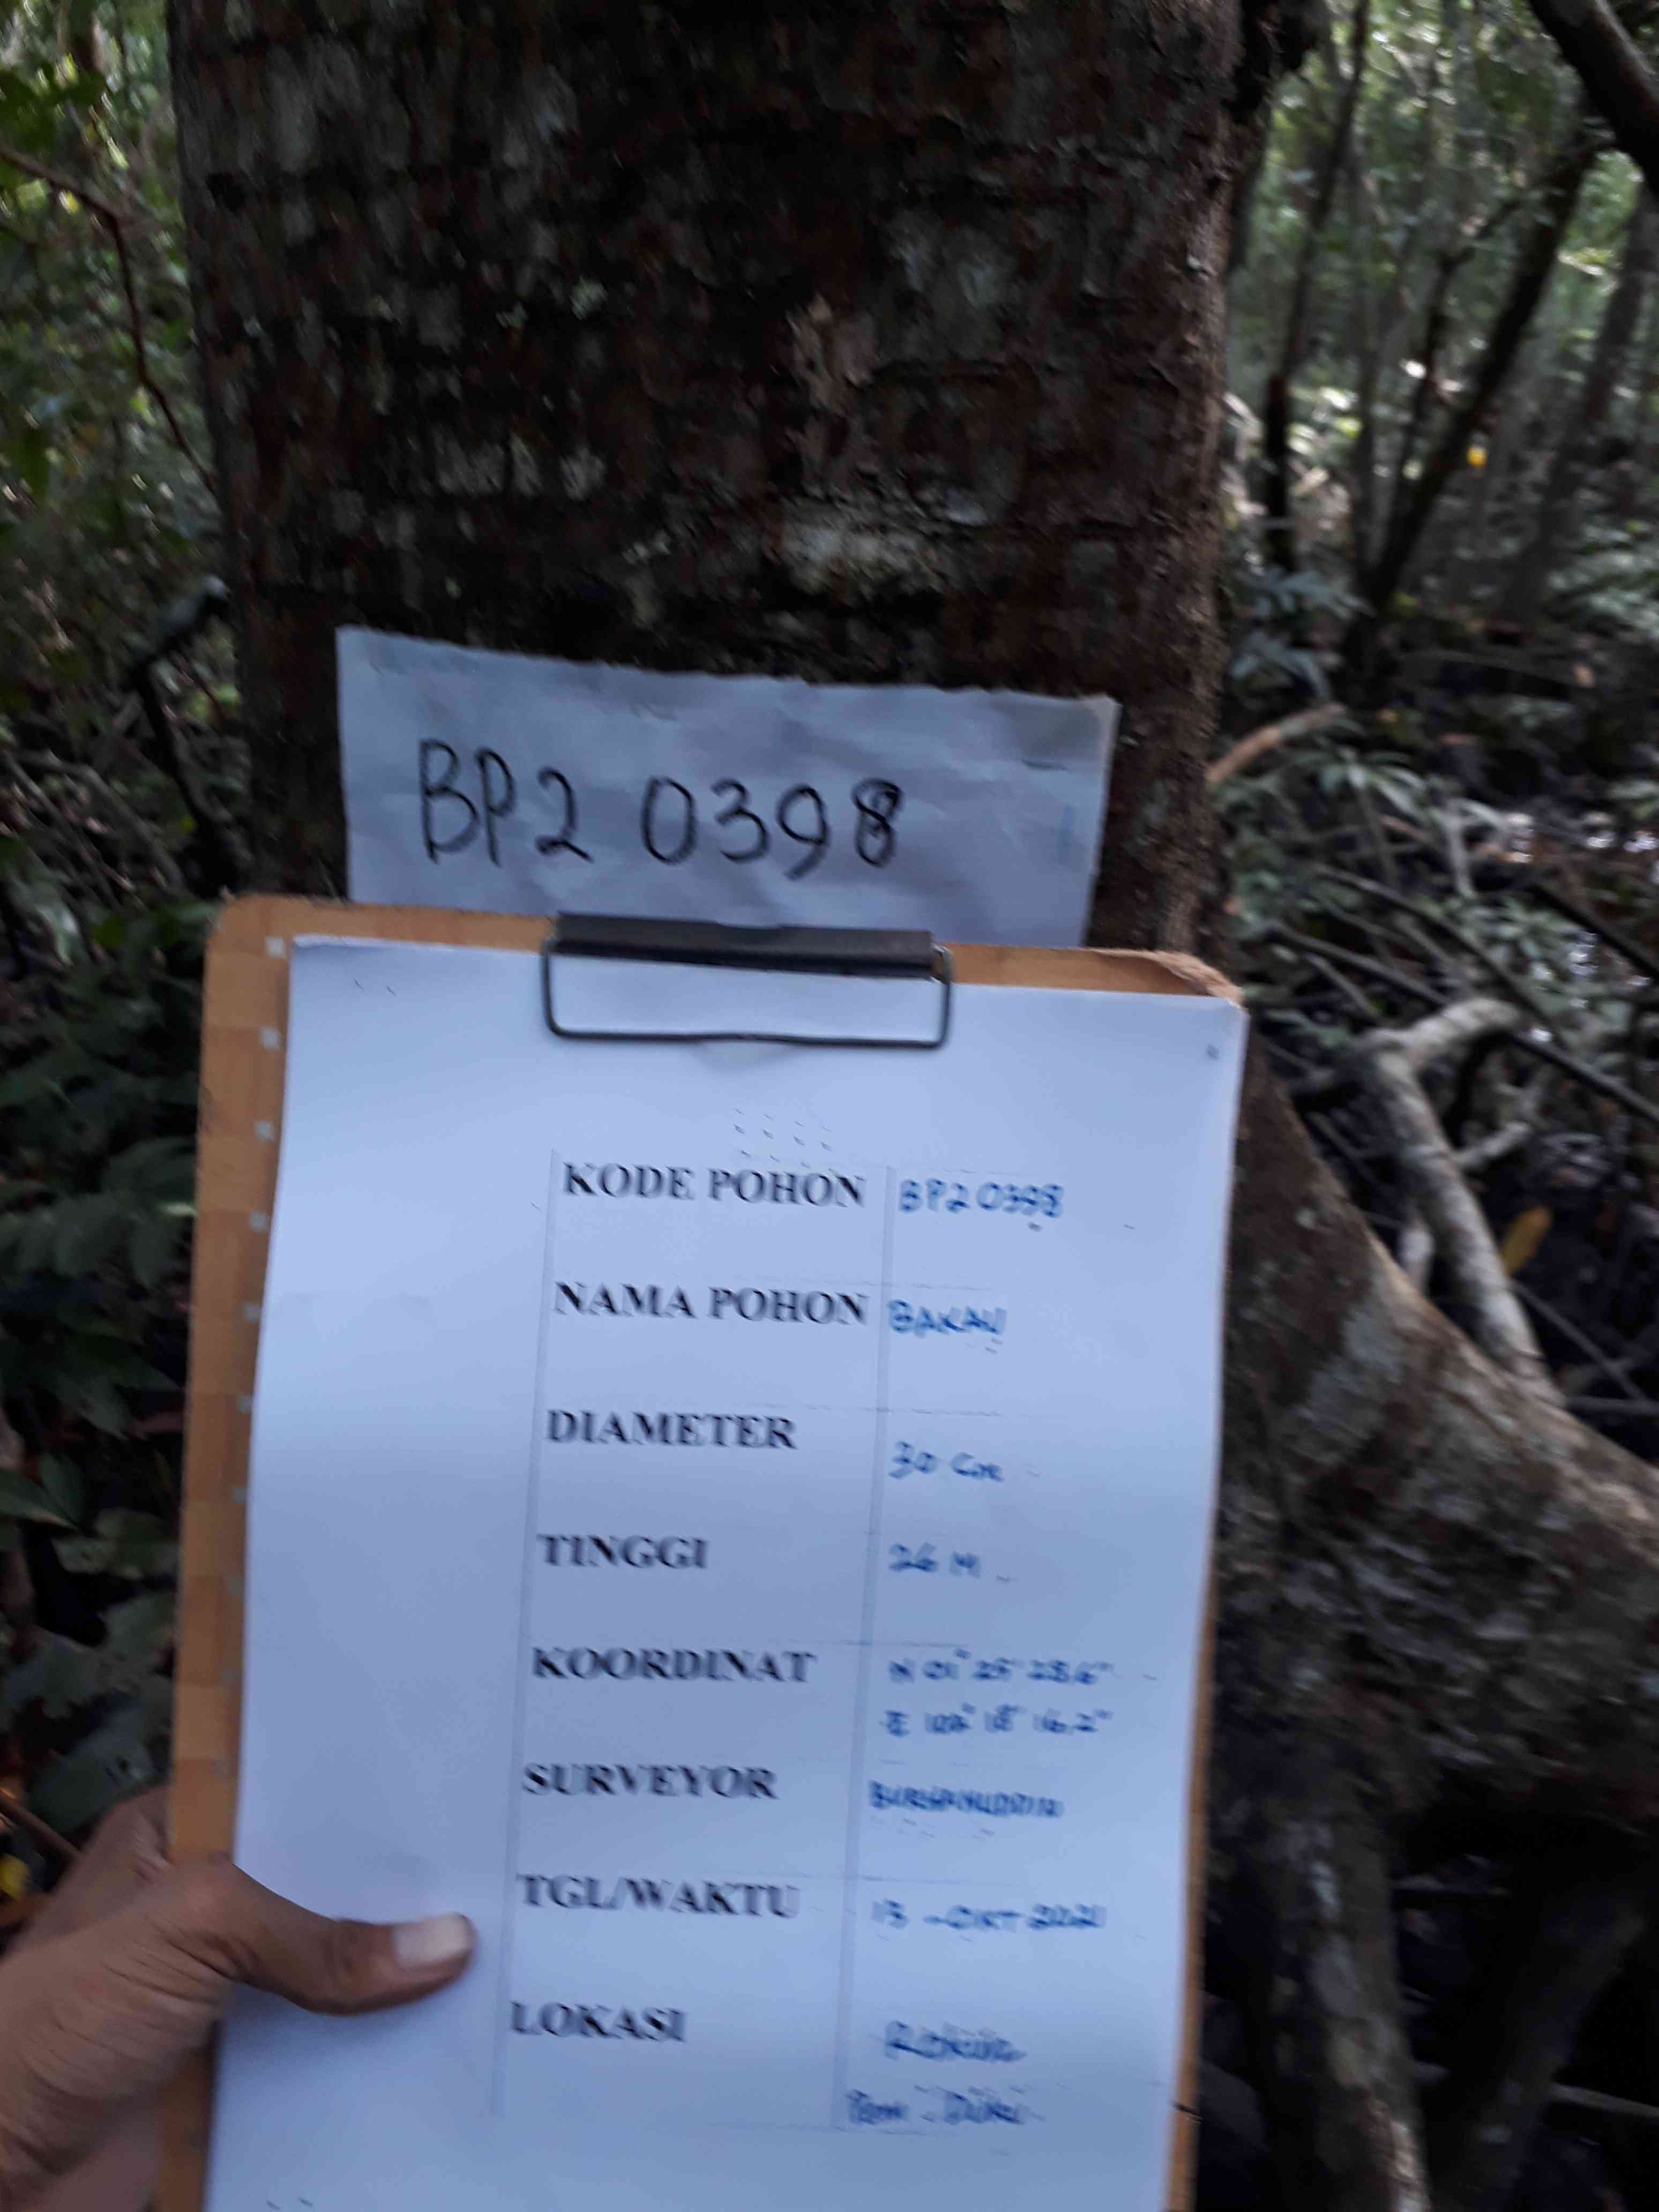 BP2 0398
KODE POHON BP2 0398
NAMA POHON BAKAU
DIAMETER 30 Cm
TINGGI 26 M
KOORDINAT N 01° 25' 28.6"
E 102° 18' 16.2"
SURVEYOR BURHANUDDIN
TGL/WAKTU 13 - OKT 2021
LOKASI